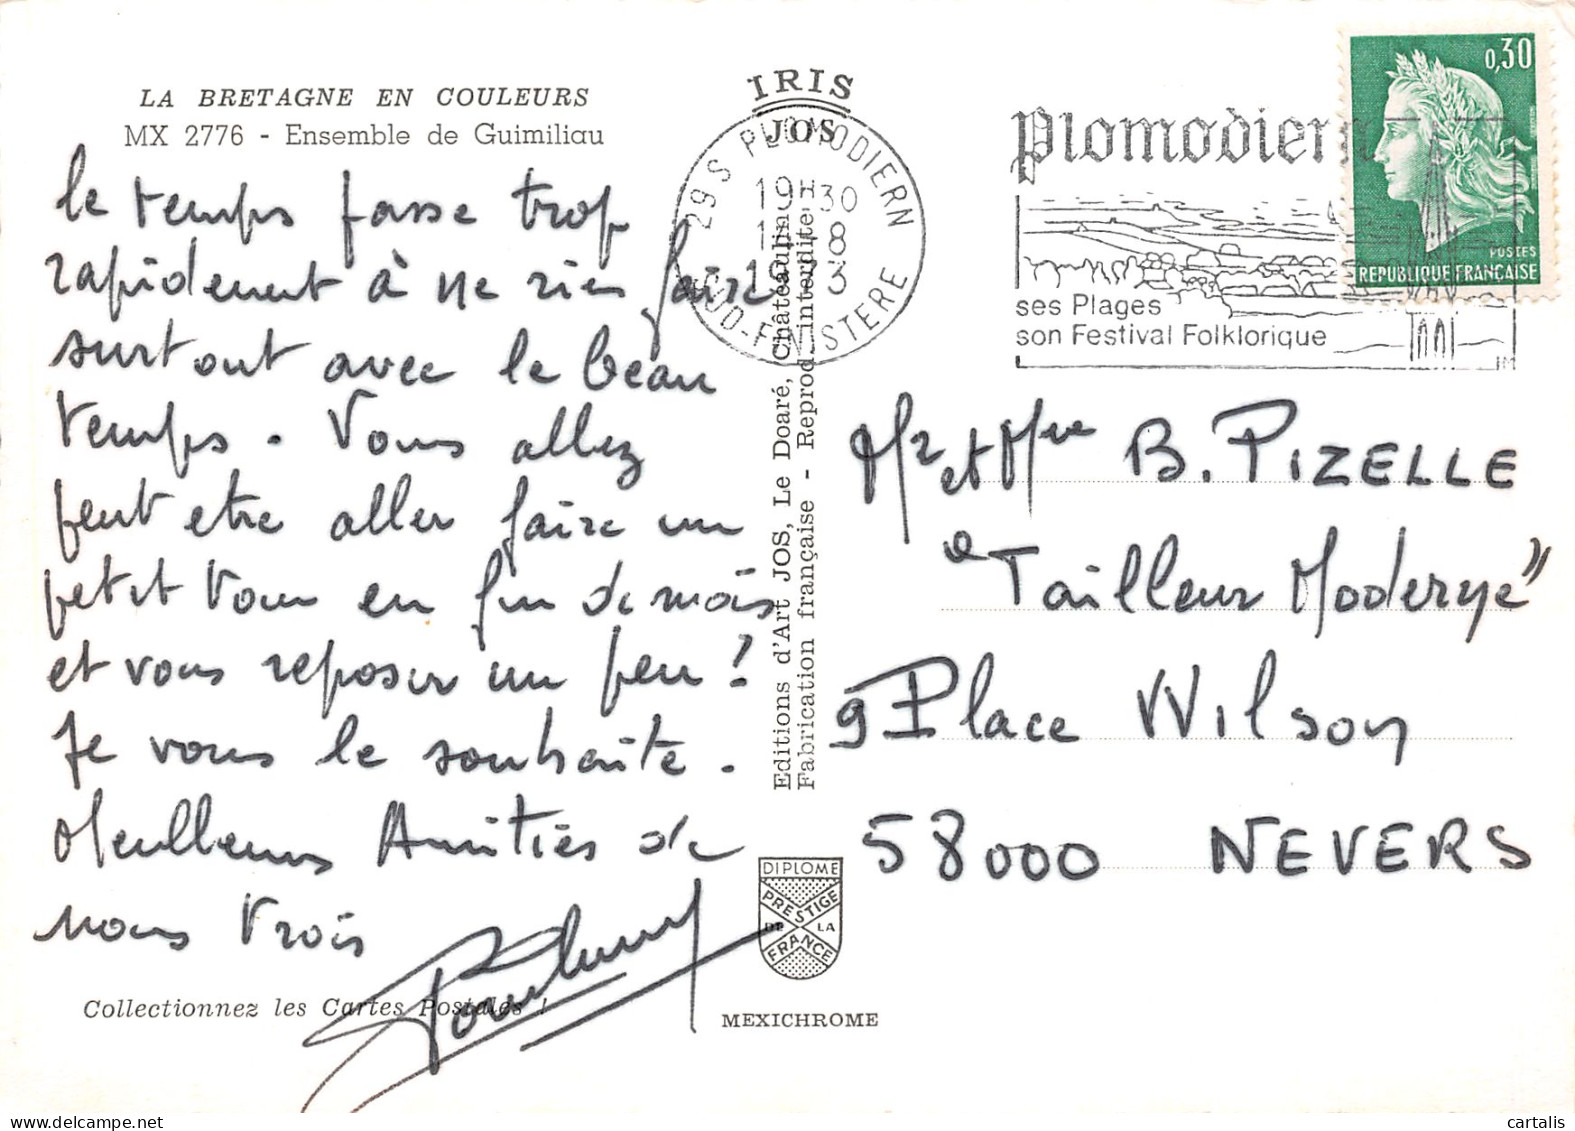 LA BRETAGNE EN COULEURS
MX 2776 - Ensemble de Guimiliau
le temps passe trop
rapidement à ne rien faire
surtout avec le beau
temps. Vous allez
peut etre aller faire un
petit tour en fin de mois
et vous reposer un peu !
Je vous le souhaite.
Meilleures Amitiés de
nous trois
Collectionnez les Cartes Postales !
IRIS
JOS
29 S PLOMODIERN
19H30
8
SUD-FINISTERE
Editions d'Art JOS, Le Doaré, Châteaulin
Fabrication française - Reprod. interdite
DIPLOME
PRESTIGE
DE LA
FRANCE
MEXICHROME
Plomodiern
ses Plages
son Festival Folklorique
0,30
POSTES
REPUBLIQUE FRANÇAISE
Mr et Mme B. PIZELLE
"Tailleur Moderne"
9 Place Wilson
58000 NEVERS
cartalis